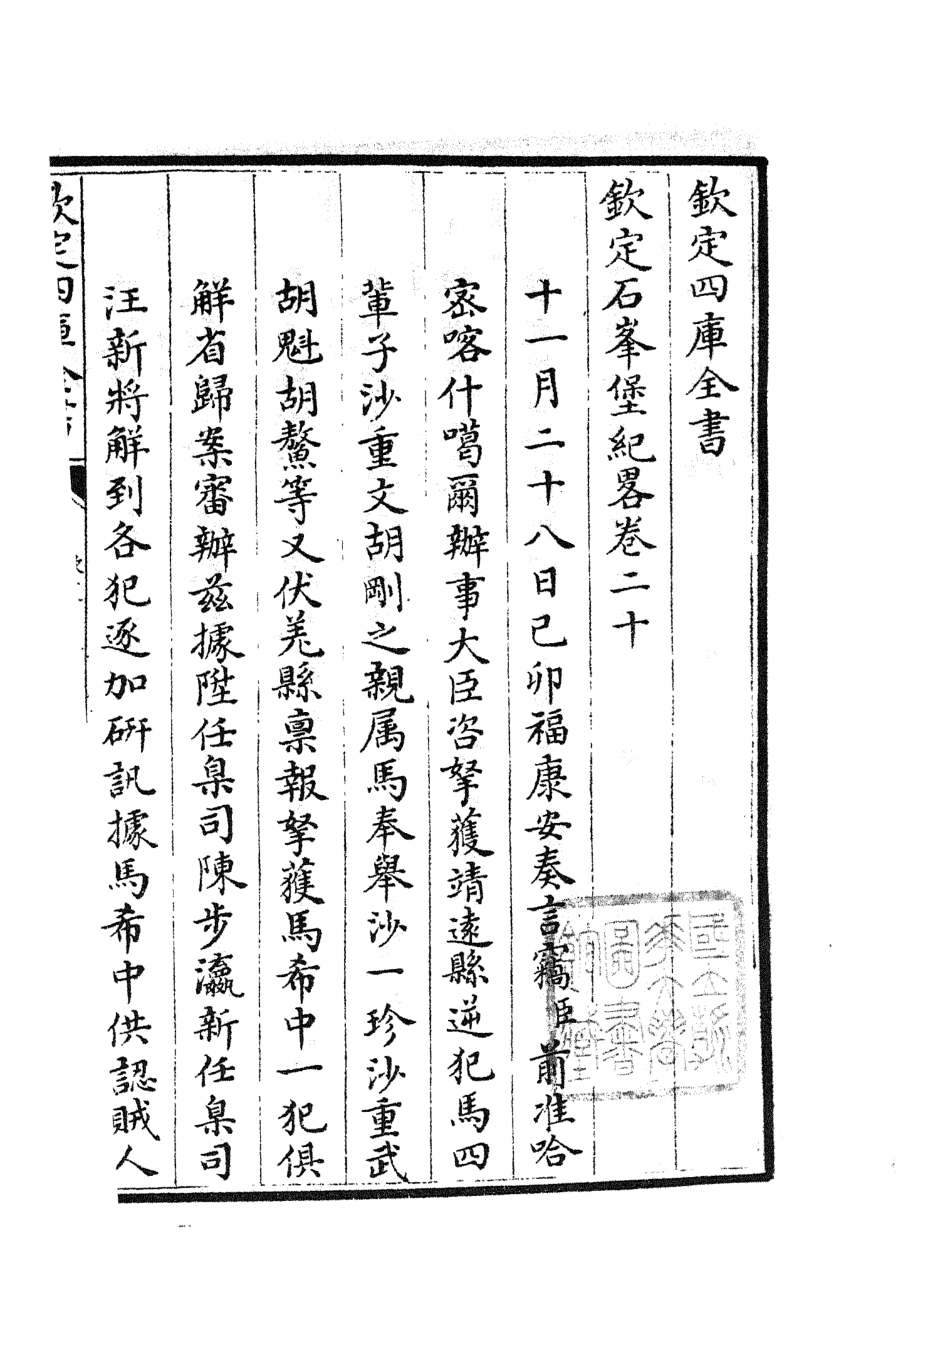 欽定四庫全書
欽定石峯堡紀畧卷二十
十一月二十八日己卯福康安奏言竊臣前准哈
宻喀什噶爾辦事大臣咨拏獲靖逺縣逆犯馬四
軰子沙重文胡剛之親属馬奉舉沙一珍沙重武
胡魁胡鰲等又伏羌縣禀報拏獲馬希中一犯俱
解省歸案審辦兹據陞任臬司陳步瀛新任臬司
汪新將解到各犯逐加研訊據馬希中供認賊人
欽定四庫全書